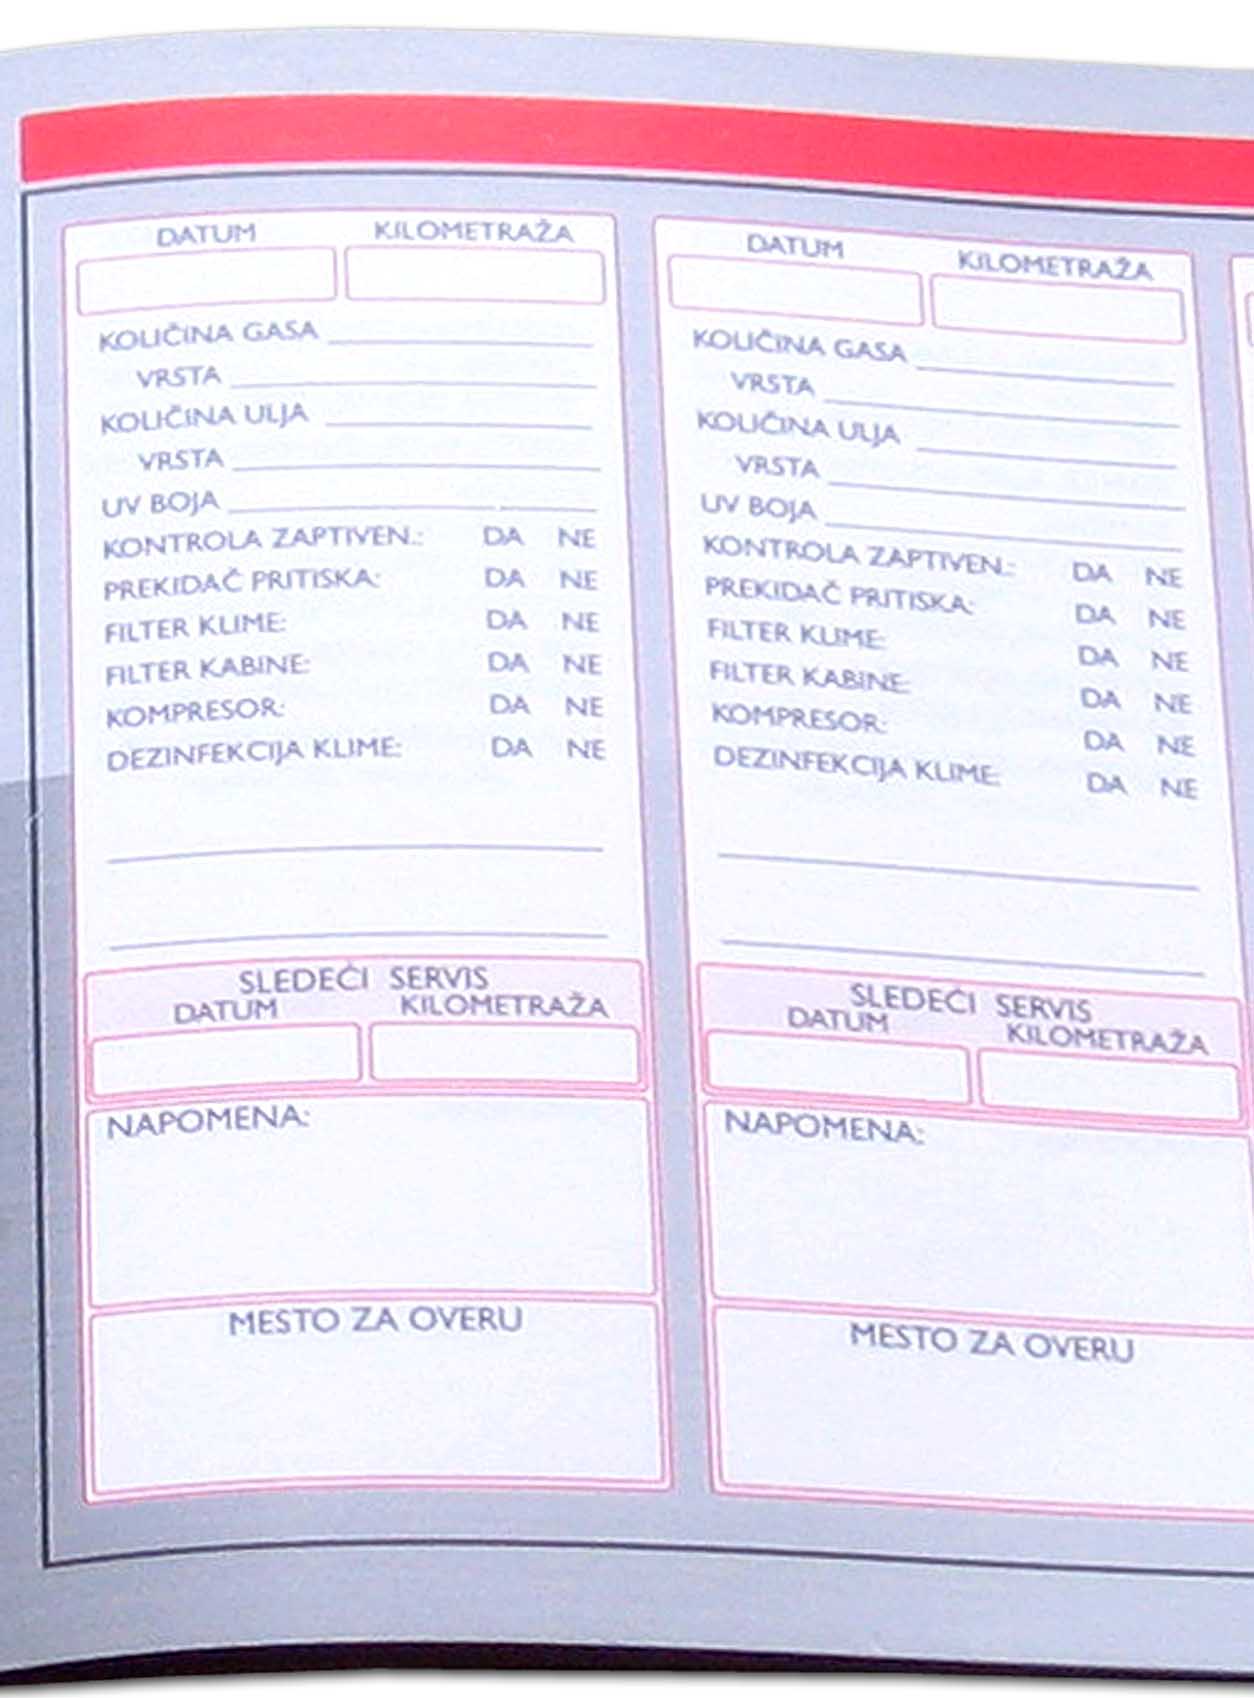 DATUM KILOMETRAŽA
KOLIČINA GASA
VRSTA
KOLIČINA ULJA
VRSTA
UV BOJA
KONTROLA ZAPTIVEN.: DA NE
PREKIDAČ PRITISKA: DA NE
FILTER KLIME: DA NE
FILTER KABINE: DA NE
KOMPRESOR: DA NE
DEZINFEKCIJA KLIME: DA NE
SLEDEĆI SERVIS
DATUM KILOMETRAŽA
NAPOMENA:
MESTO ZA OVERU
DATUM KILOMETRAŽA
KOLIČINA GASA
VRSTA
KOLIČINA ULJA
VRSTA
UV BOJA
KONTROLA ZAPTIVEN.: DA NE
PREKIDAČ PRITISKA: DA NE
FILTER KLIME: DA NE
FILTER KABINE: DA NE
KOMPRESOR: DA NE
DEZINFEKCIJA KLIME: DA NE
SLEDEĆI SERVIS
DATUM KILOMETRAŽA
NAPOMENA:
MESTO ZA OVERU